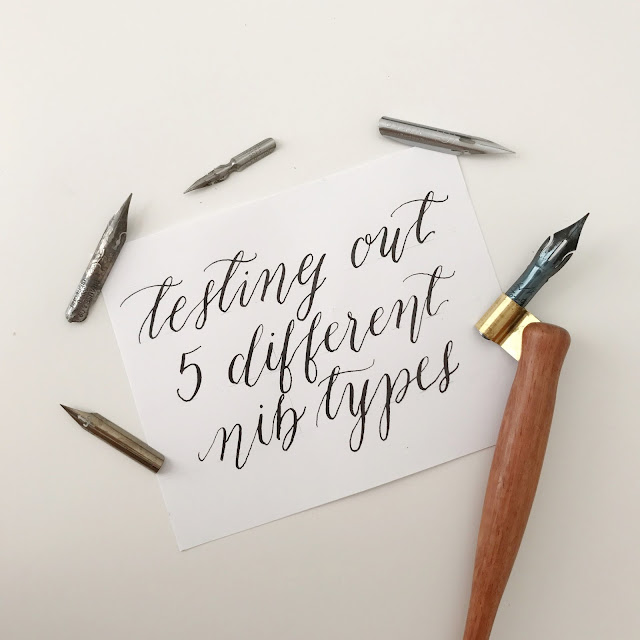 testing out
5 different
nib types